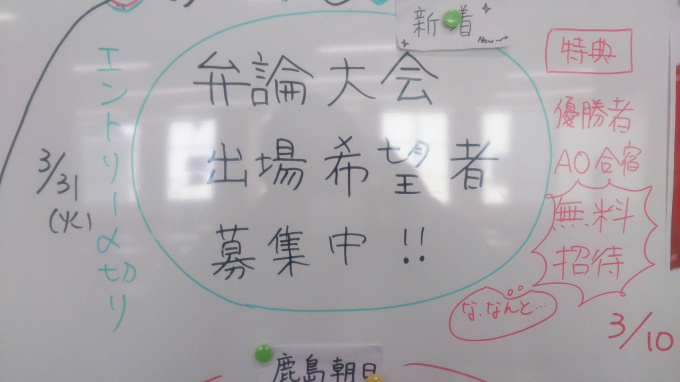 新着
New
弁論大会
出場希望者
募集中!!
エントリー〆切り
3/31
(火)
特典
優勝者
AO合宿
無料
招待
な、なんと…
3/10
鹿島朝日